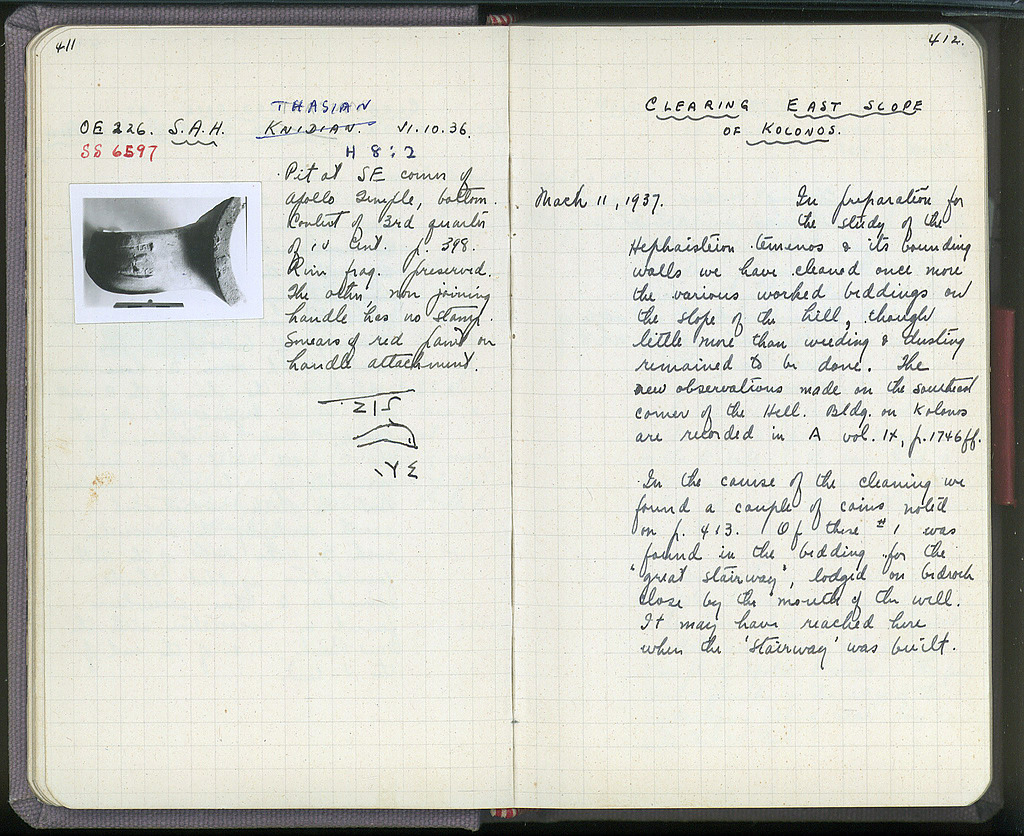 411
THASIAN
OE 226. S.A.H. KNIDIAN. VI.10.36.
SS 6597
H 8:2
Pit at SE corner of
Apollo Temple, bottom.
Context of 3rd quarter
of IV Cent. p. 398.
Rim frag. preserved.
The other, non joining
handle has no stamp.
Smears of red paint on
handle attachment.
412.
CLEARING EAST SLOPE
OF KOLONOS.
March 11, 1937. In preparation for
the study of the
Hephaisteion temenos & its bounding
walls we have cleaned once more
the various worked beddings on
the slope of the hill, though
little more than weeding & dusting
remained to be done. The
new observations made on the southeast
corner of the Hell. Bldg. on Kolonos
are recorded in A vol. IX, p. 1746 ff.
In the course of the cleaning we
found a couple of coins noted
on p. 413. Of these #1 was
found in the bedding for the
'great stairway', lodged on bedrock
close by the mouth of the well.
It may have reached here
when the 'stairway' was built.